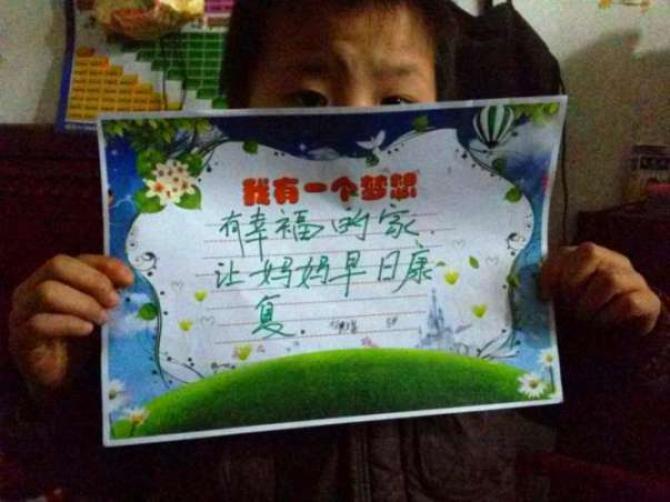 我有一个梦想
有幸福的家.
让妈妈早日康
复